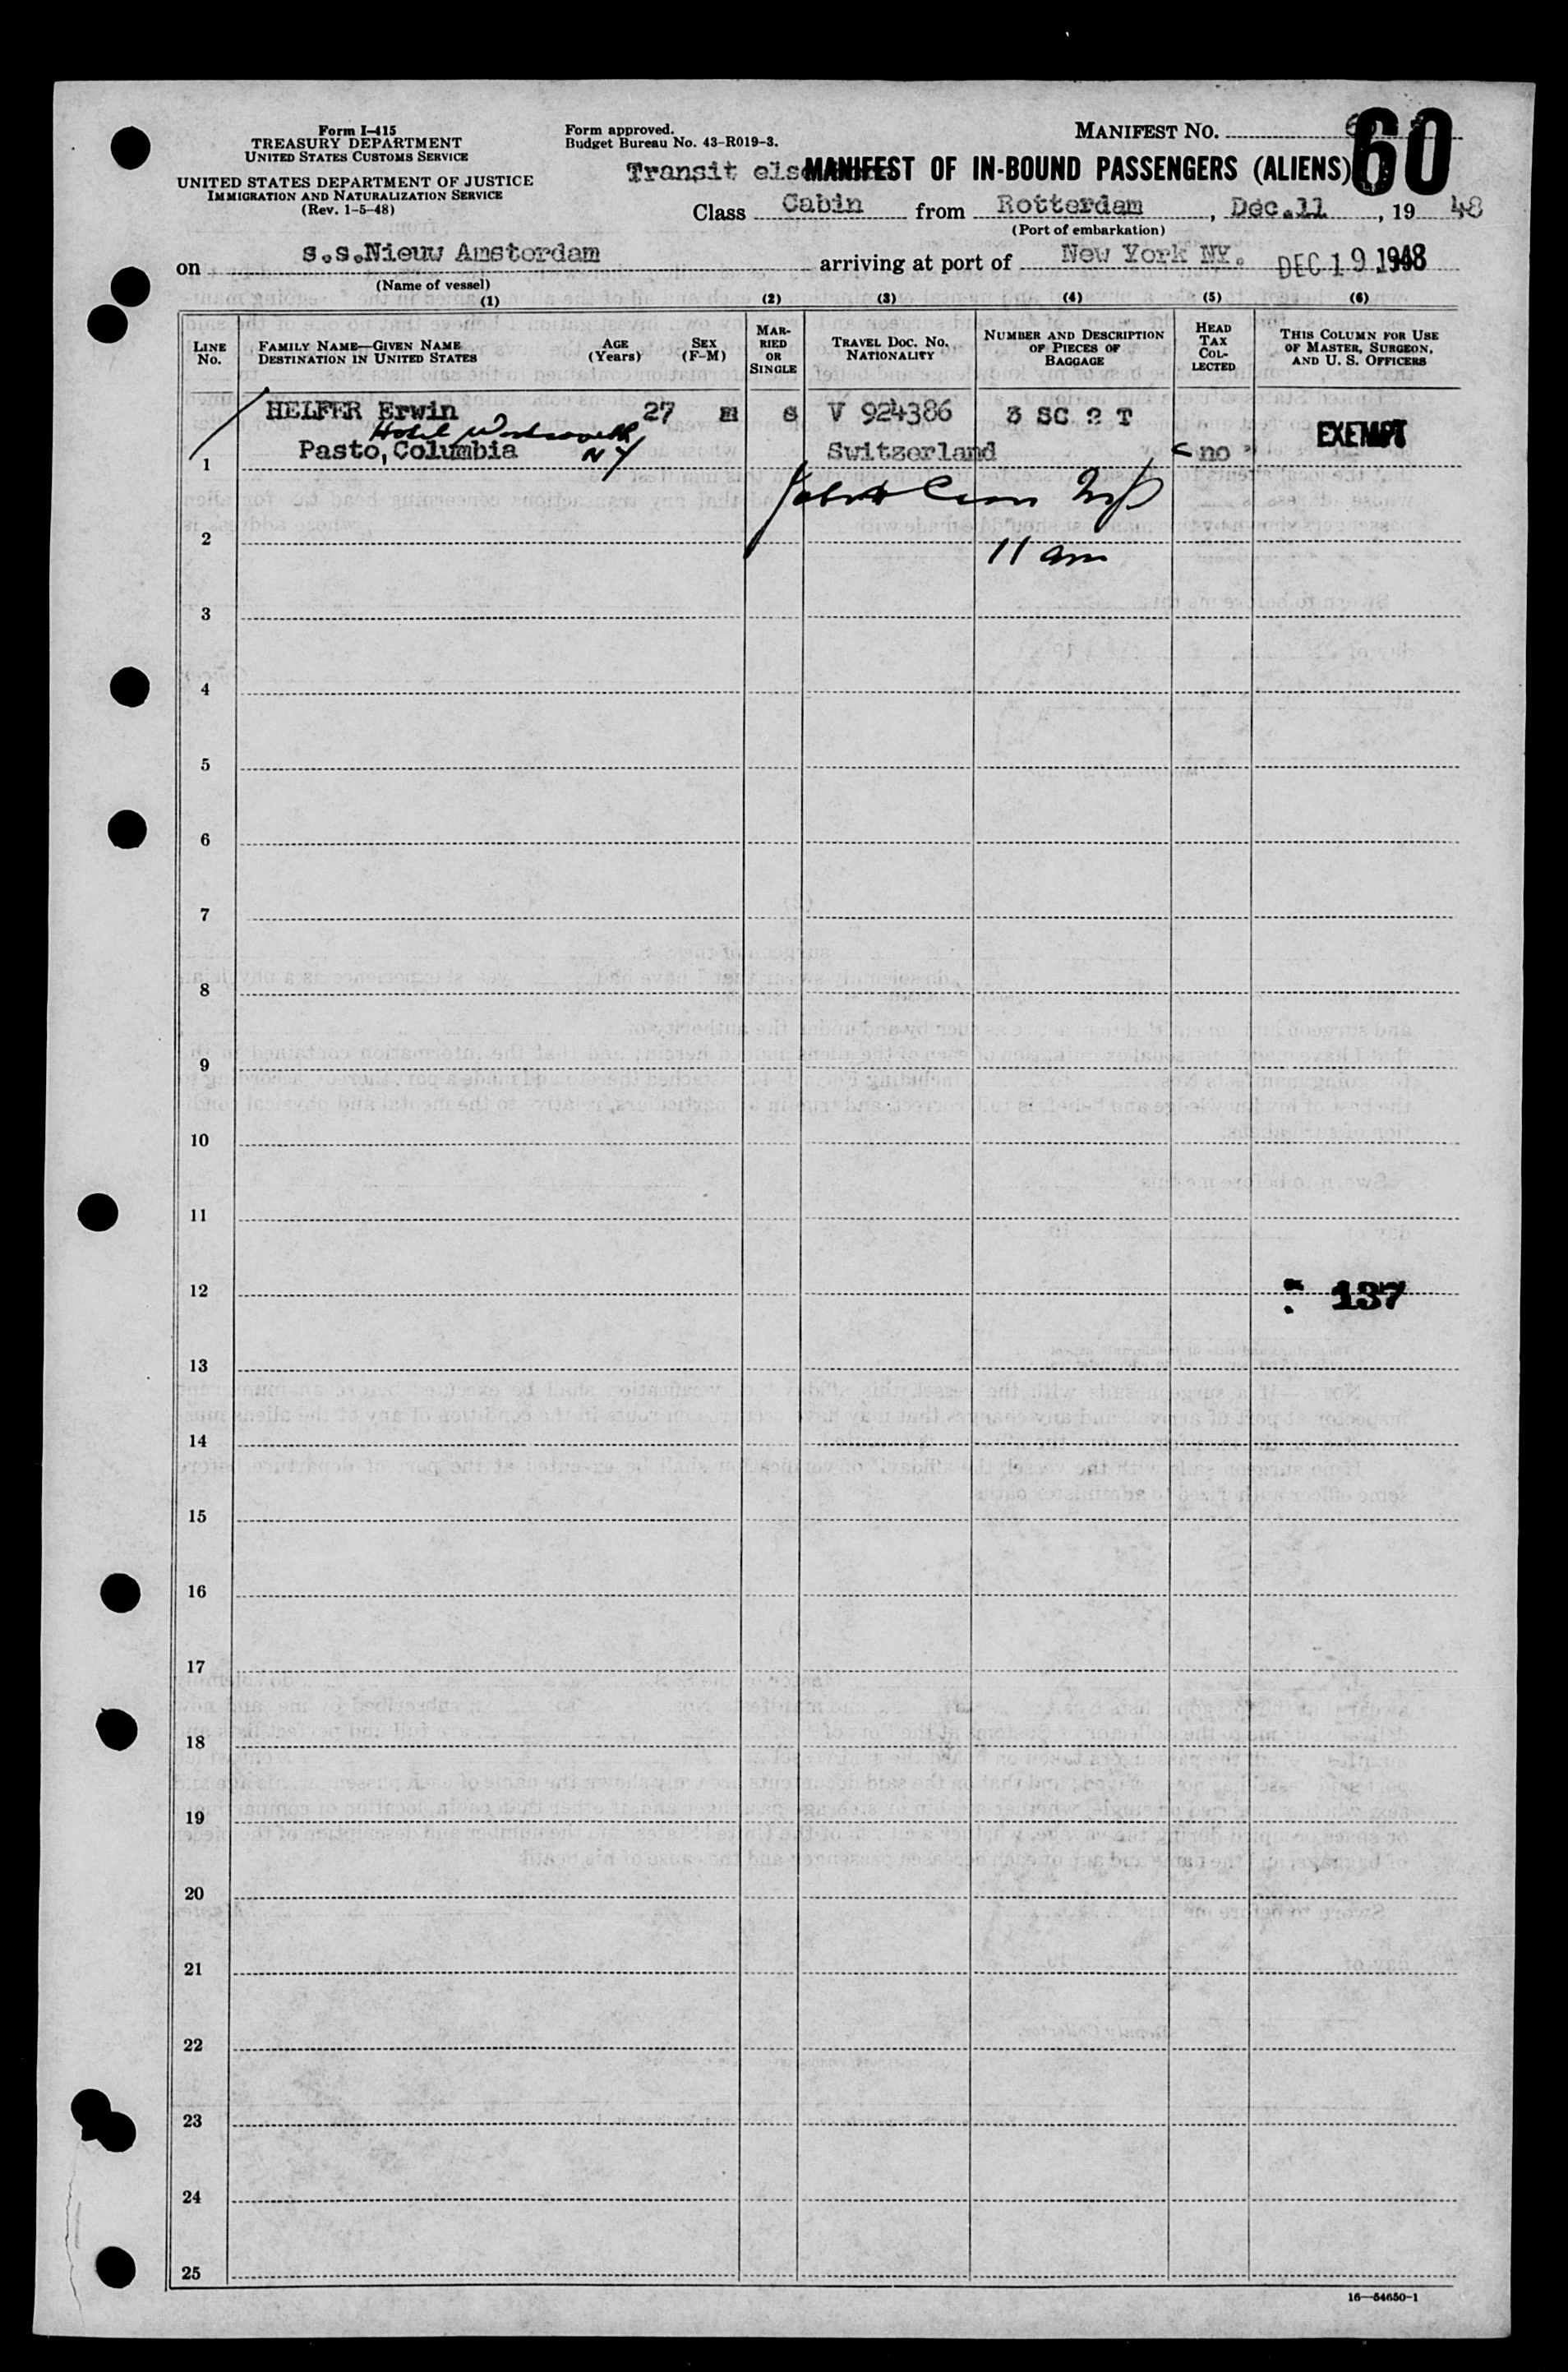 Form I-415
TREASURY DEPARTMENT
UNITED STATES CUSTOMS SERVICE
UNITED STATES DEPARTMENT OF JUSTICE
IMMIGRATION AND NATURALIZATION SERVICE
(Rev. 1-5-48)
Form approved.
Budget Bureau No. 43-R019-3.
MANIFEST No. 60
Transit MANIFEST OF IN-BOUND PASSENGERS (ALIENS)
Class Cabin from Rotterdam, Dec.11, 1948
(Port of embarkation)
on s.s.Nieuw Amsterdam arriving at port of New York NY. DEC 19 1948
(Name of vessel)
(1) (2) (3) (4) (5) (6)
LINE No.
FAMILY NAME—GIVEN NAME
DESTINATION IN UNITED STATES
AGE (Years)
SEX (F-M)
MARRIED OR SINGLE
TRAVEL DOC. NO.
NATIONALITY
NUMBER AND DESCRIPTION OF PIECES OF BAGGAGE
HEAD TAX COLLECTED
THIS COLUMN FOR USE OF MASTER, SURGEON, AND U. S. OFFICERS
HELFER Erwin 27 m s V 924386 3 SC 2 T
Hotel NY
1 Pasto, Columbia Switzerland no EXEMPT
2
11 am
3
4
5
6
7
8
9
10
11
12 137
13
14
15
16
17
18
19
20
21
22
23
24
25
16—54650-1